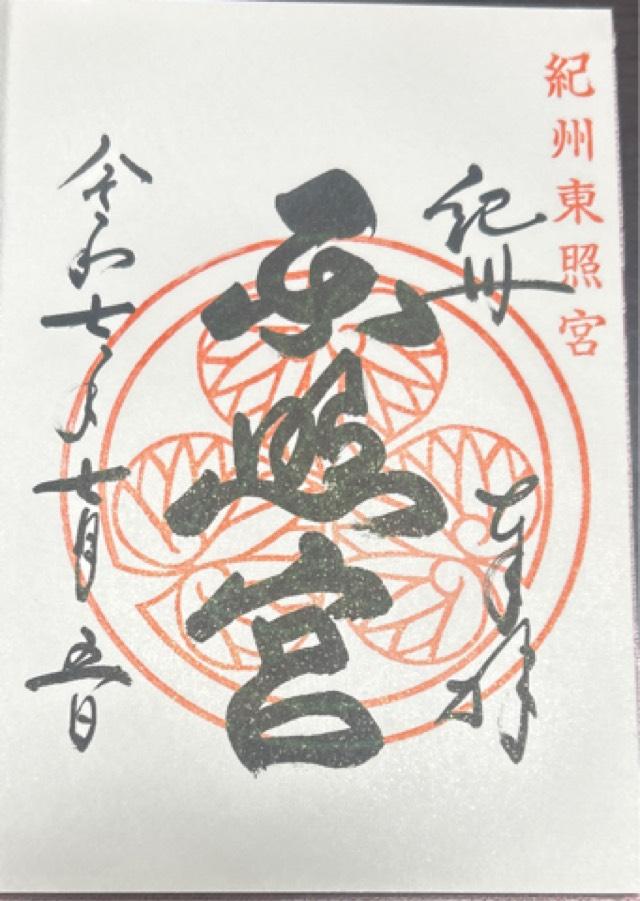 紀州東照宮
紀州
奉拝
東照宮
令和七年七月五日